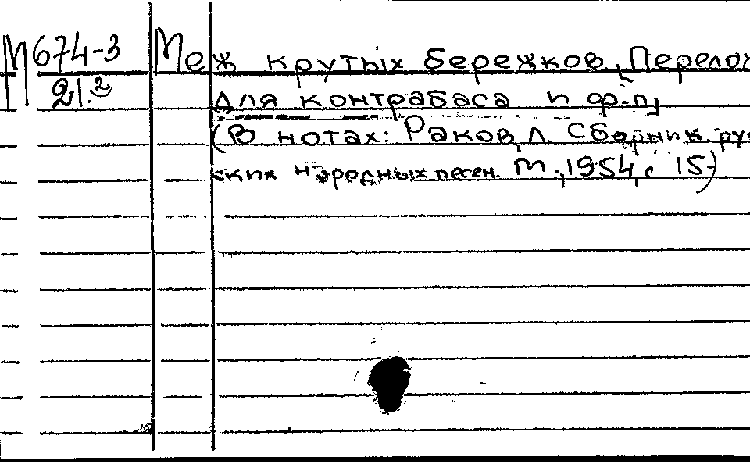 М 674-3 Меж крутых бережков. [Перелож
21.2 для контрабаса и ф-п]
(В нотах: Раков, Л. Сборник рус
ских народных песен. М., 1954, с. 15)